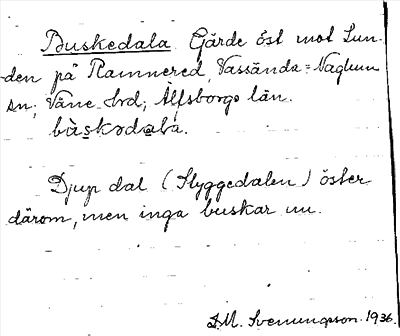 Buskedala Gärde öst mot Lun-
den på Ramnered, Vassända=Naglum
sn; Väne hrd; Älfsborgs län.
bùskədala.
Djup dal (Skyggedalen) öster
därom, men inga buskar nu.
J.M. Svenungsson. 1936.